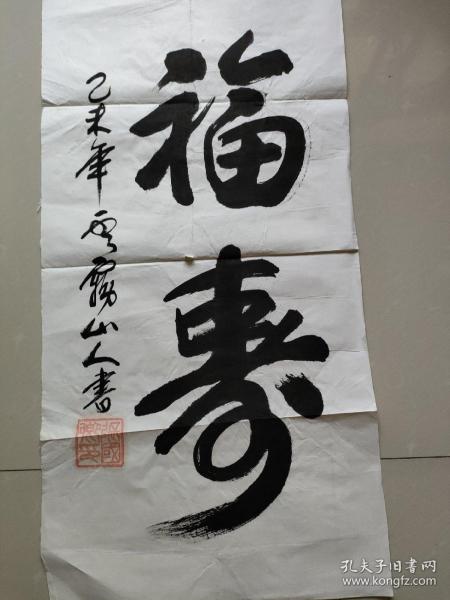 福寿
己未年云霧山人書
孔夫子旧書网
www.kongfz.com